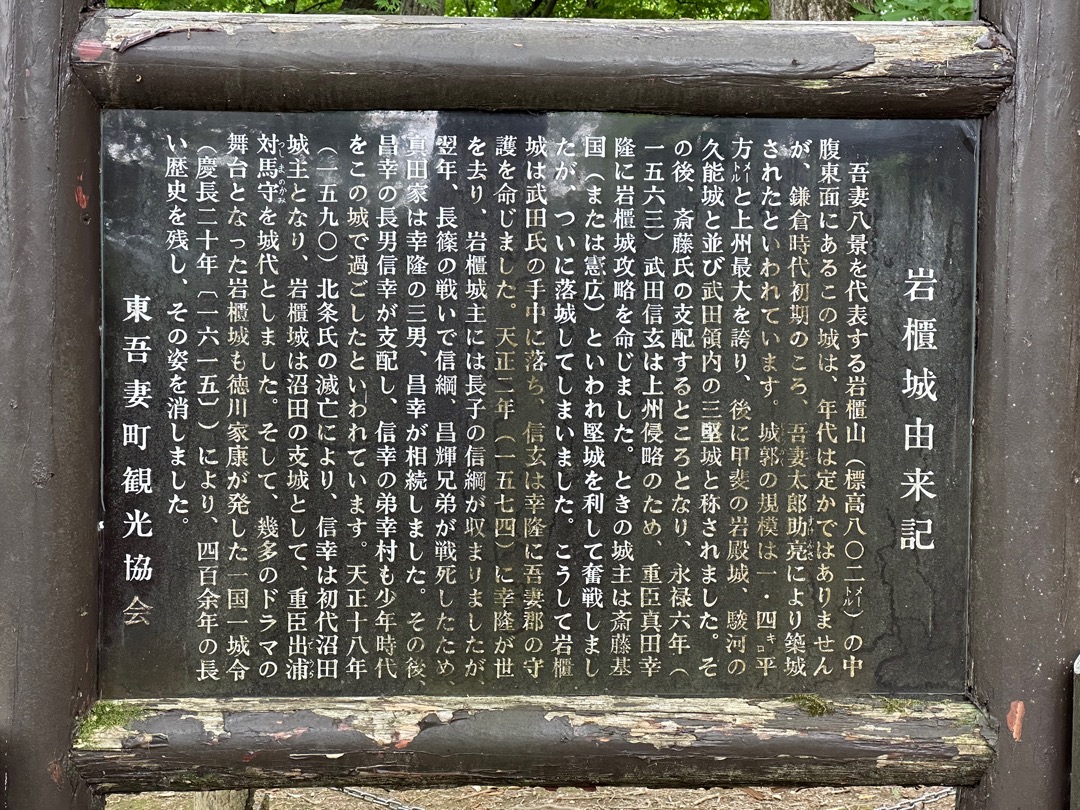 岩櫃城由来記
吾妻八景を代表する岩櫃山（標高八〇二㍍）の中
腹東面にあるこの城は、年代は定かではありません
が、鎌倉時代初期のころ、吾妻太郎助亮により築城
されたといわれています。城郭の規模は一・四㌔平
方㍍と上州最大を誇り、後に甲斐の岩殿城、駿河の
久能城と並び武田領内の三堅城と称されました。そ
の後、斎藤氏の支配するところとなり、永禄六年（
一五六三）武田信玄は上州侵略のため、重臣真田幸
隆に岩櫃城攻略を命じました。ときの城主は斎藤基
国（または憲広）といわれ堅城を利して奮戦しまし
たが、ついに落城してしまいました。こうして岩櫃
城は武田氏の手中に落ち、信玄は幸隆に吾妻郡の守
護を命じました。天正二年（一五七四）に幸隆が世
を去り、岩櫃城主には長子の信綱が収まりましたが、
翌年、長篠の戦いで信綱、昌輝兄弟が戦死したため、
真田家は幸隆の三男、昌幸が相続しました。その後、
昌幸の長男信幸が支配し、信幸の弟幸村も少年時代
をこの城で過ごしたといわれています。天正十八年
（一五九〇）北条氏の滅亡により、信幸は初代沼田
城主となり、岩櫃城は沼田の支城として、重臣出浦
対馬守を城代としました。そして、幾多のドラマの
舞台となった岩櫃城も徳川家康が発した一国一城令
（慶長二十年〔一六一五〕）により、四百余年の長
い歴史を残し、その姿を消しました。
東吾妻町観光協会